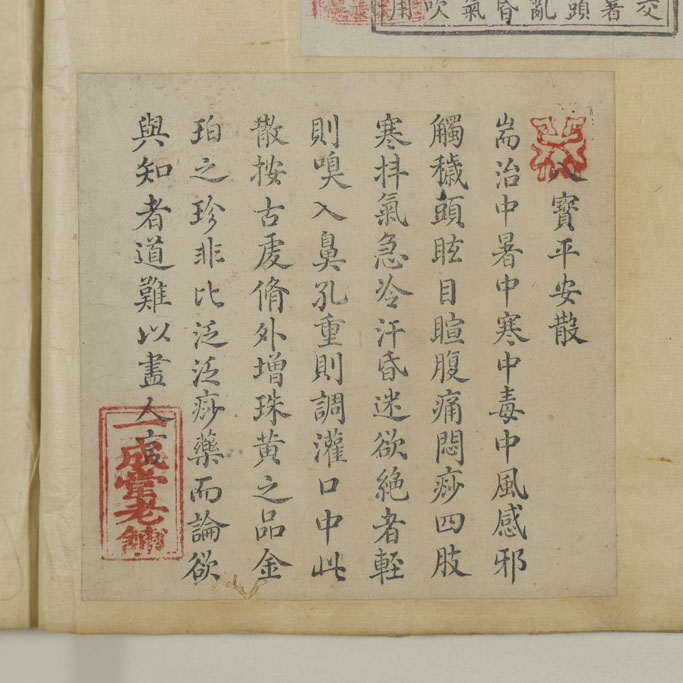 交
暑
頭
亂
昏
氣
吹
用
八寶平安散
耑治中暑中寒中毒中風感邪
觸穢頭眩目暄腹痛悶痧四肢
寒抖氣急冷汗昏迷欲絕者輕
則嗅入鼻孔重則調灌口中此
散按古虔脩外增珠黃之品金
珀之珍非比泛泛痧藥而論欲
與知者道難以盡人言
一成堂老鋪